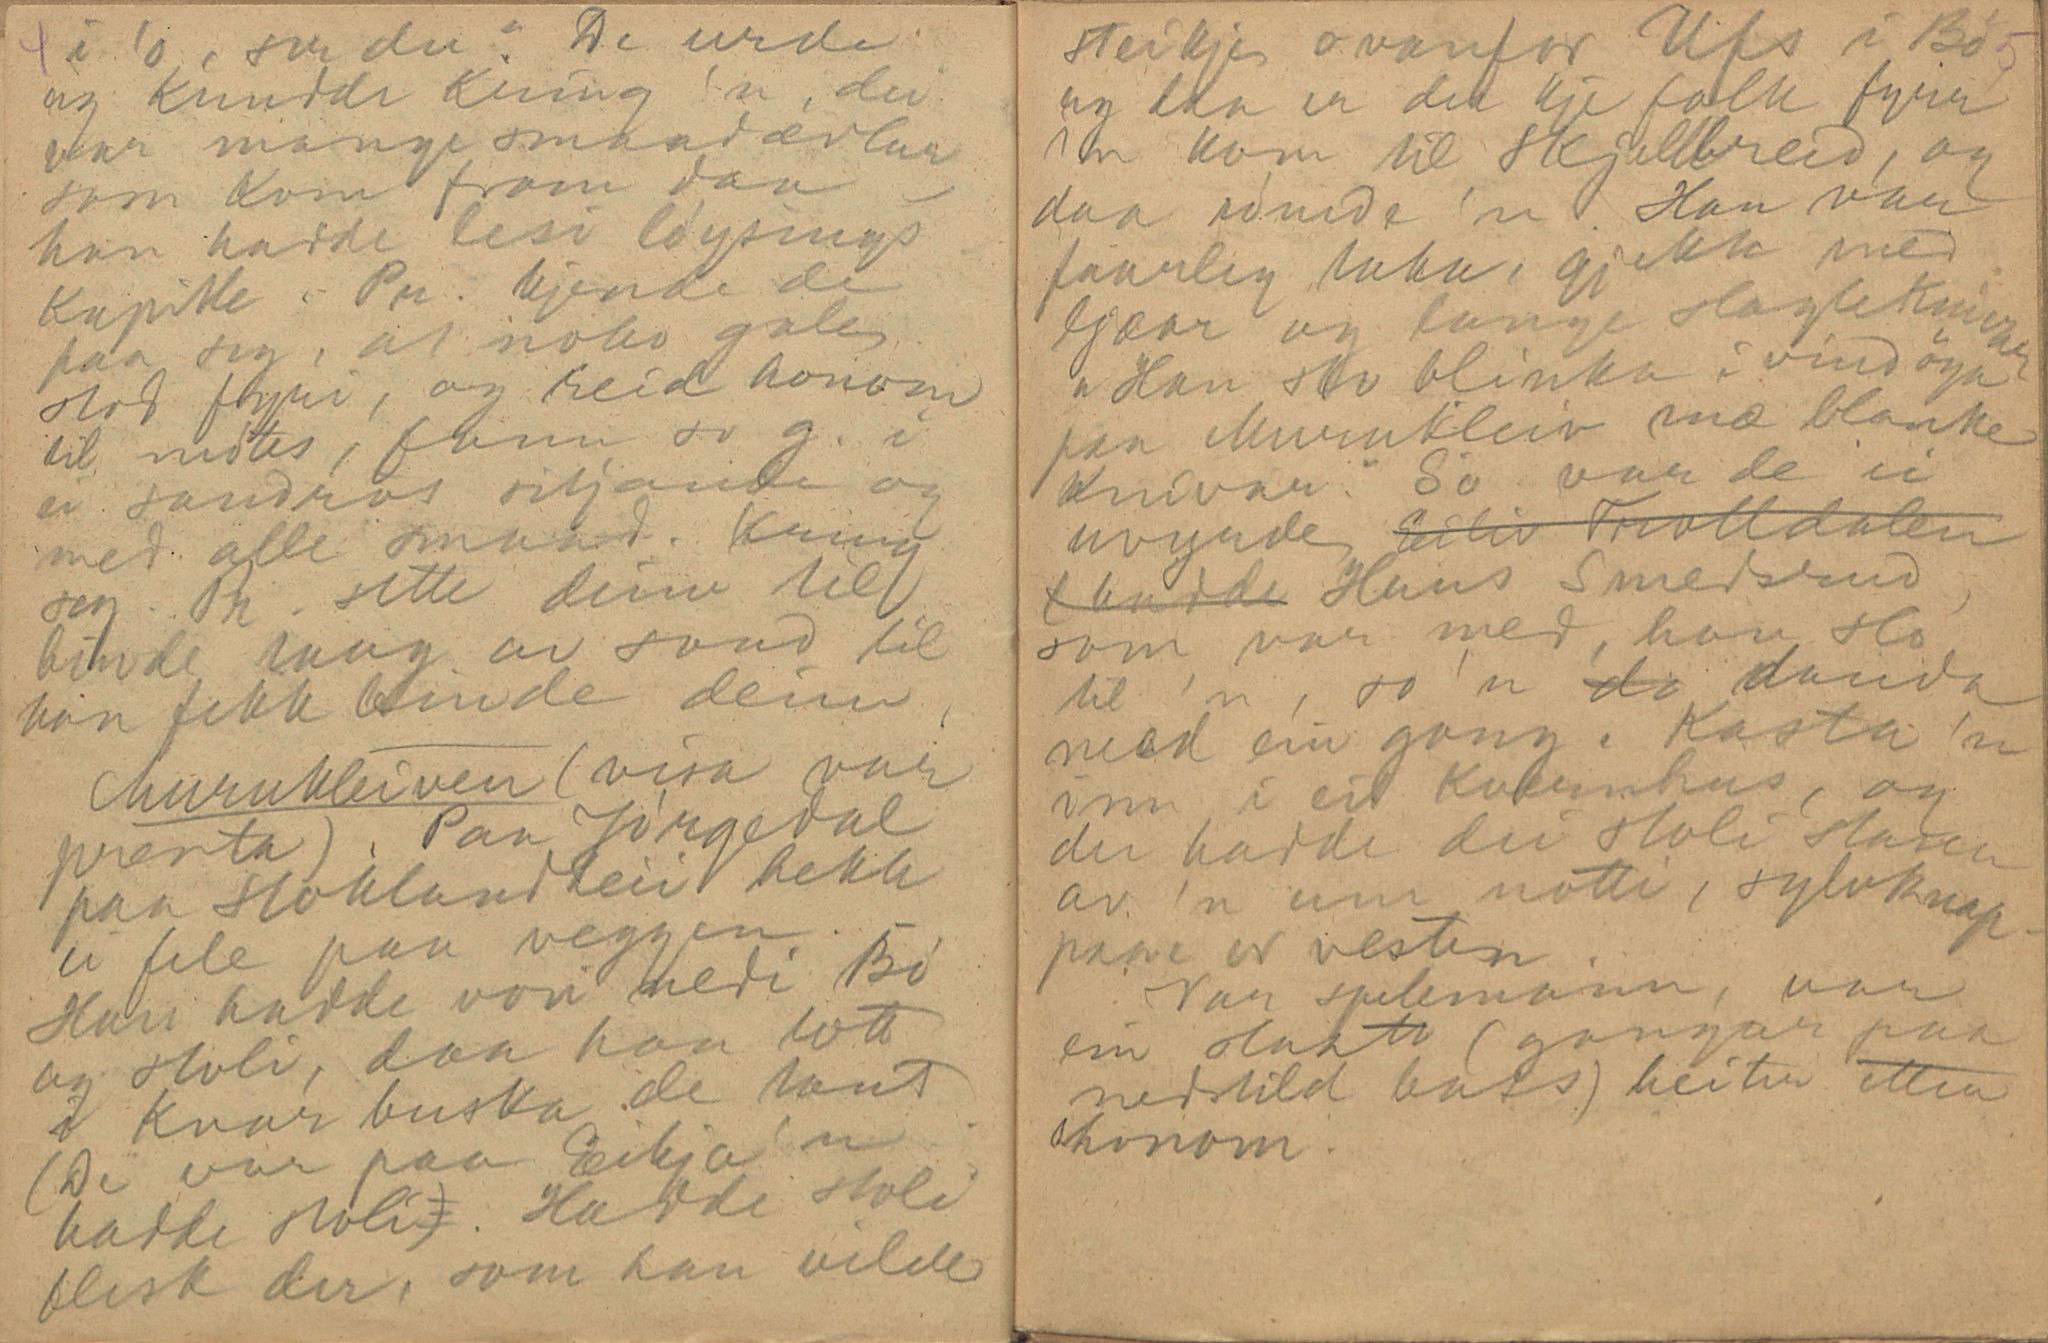 4
i 'o, ser du." De urde
og knudde kring 'n, dei
var mange smaadævlar
som kom fram daa
han hadde lesi løysings-
kapitle. Pr. kjende de
paa seg, at noko gale
stod fyri, og reid honom
til møtes, fann so g. i
ei sandros sitjande og
med alle smaad. kring
seg. Pr. sette deim til
binde taug av sand til
han fekk binde deim.
Murukleiven (visa var
prenta). Paa Jørgedal
paa Stoklandheii hekk
ei fele paa veggen.
Han hadde vori nedi Bø
og stoli, daa han tott
i kvar buska de taut
(De var paa Eikja 'n
hadde stoli). Hadde stoli
flesk der, som han vilde
5
steikje ovanfor Ufs i Bø,
og daa er dei kje folk fyrr
'n kom til Skjellbreid, og
daa rømde 'n. Han var
faarleg taka, gjekk med
ljaar og lange slagteknivar
"Han sto blinka i vindöga
paa Murukleiv mæ blanke
knivar." So var de ei
uvyrde, Eiliv Trolldalen
(hadde Hans Smedsrud,
som var med, han slo
til 'n, so 'n da danda
med ein gong. Kasta 'n
inn i eit kvernhus, og
der hadde dei stoli stasen
av 'n um notti, sylvknap-
pane or vesten.
Var spelemann, var
ein slaatt (gangar paa
nedstild bass) heiter etter
honom.